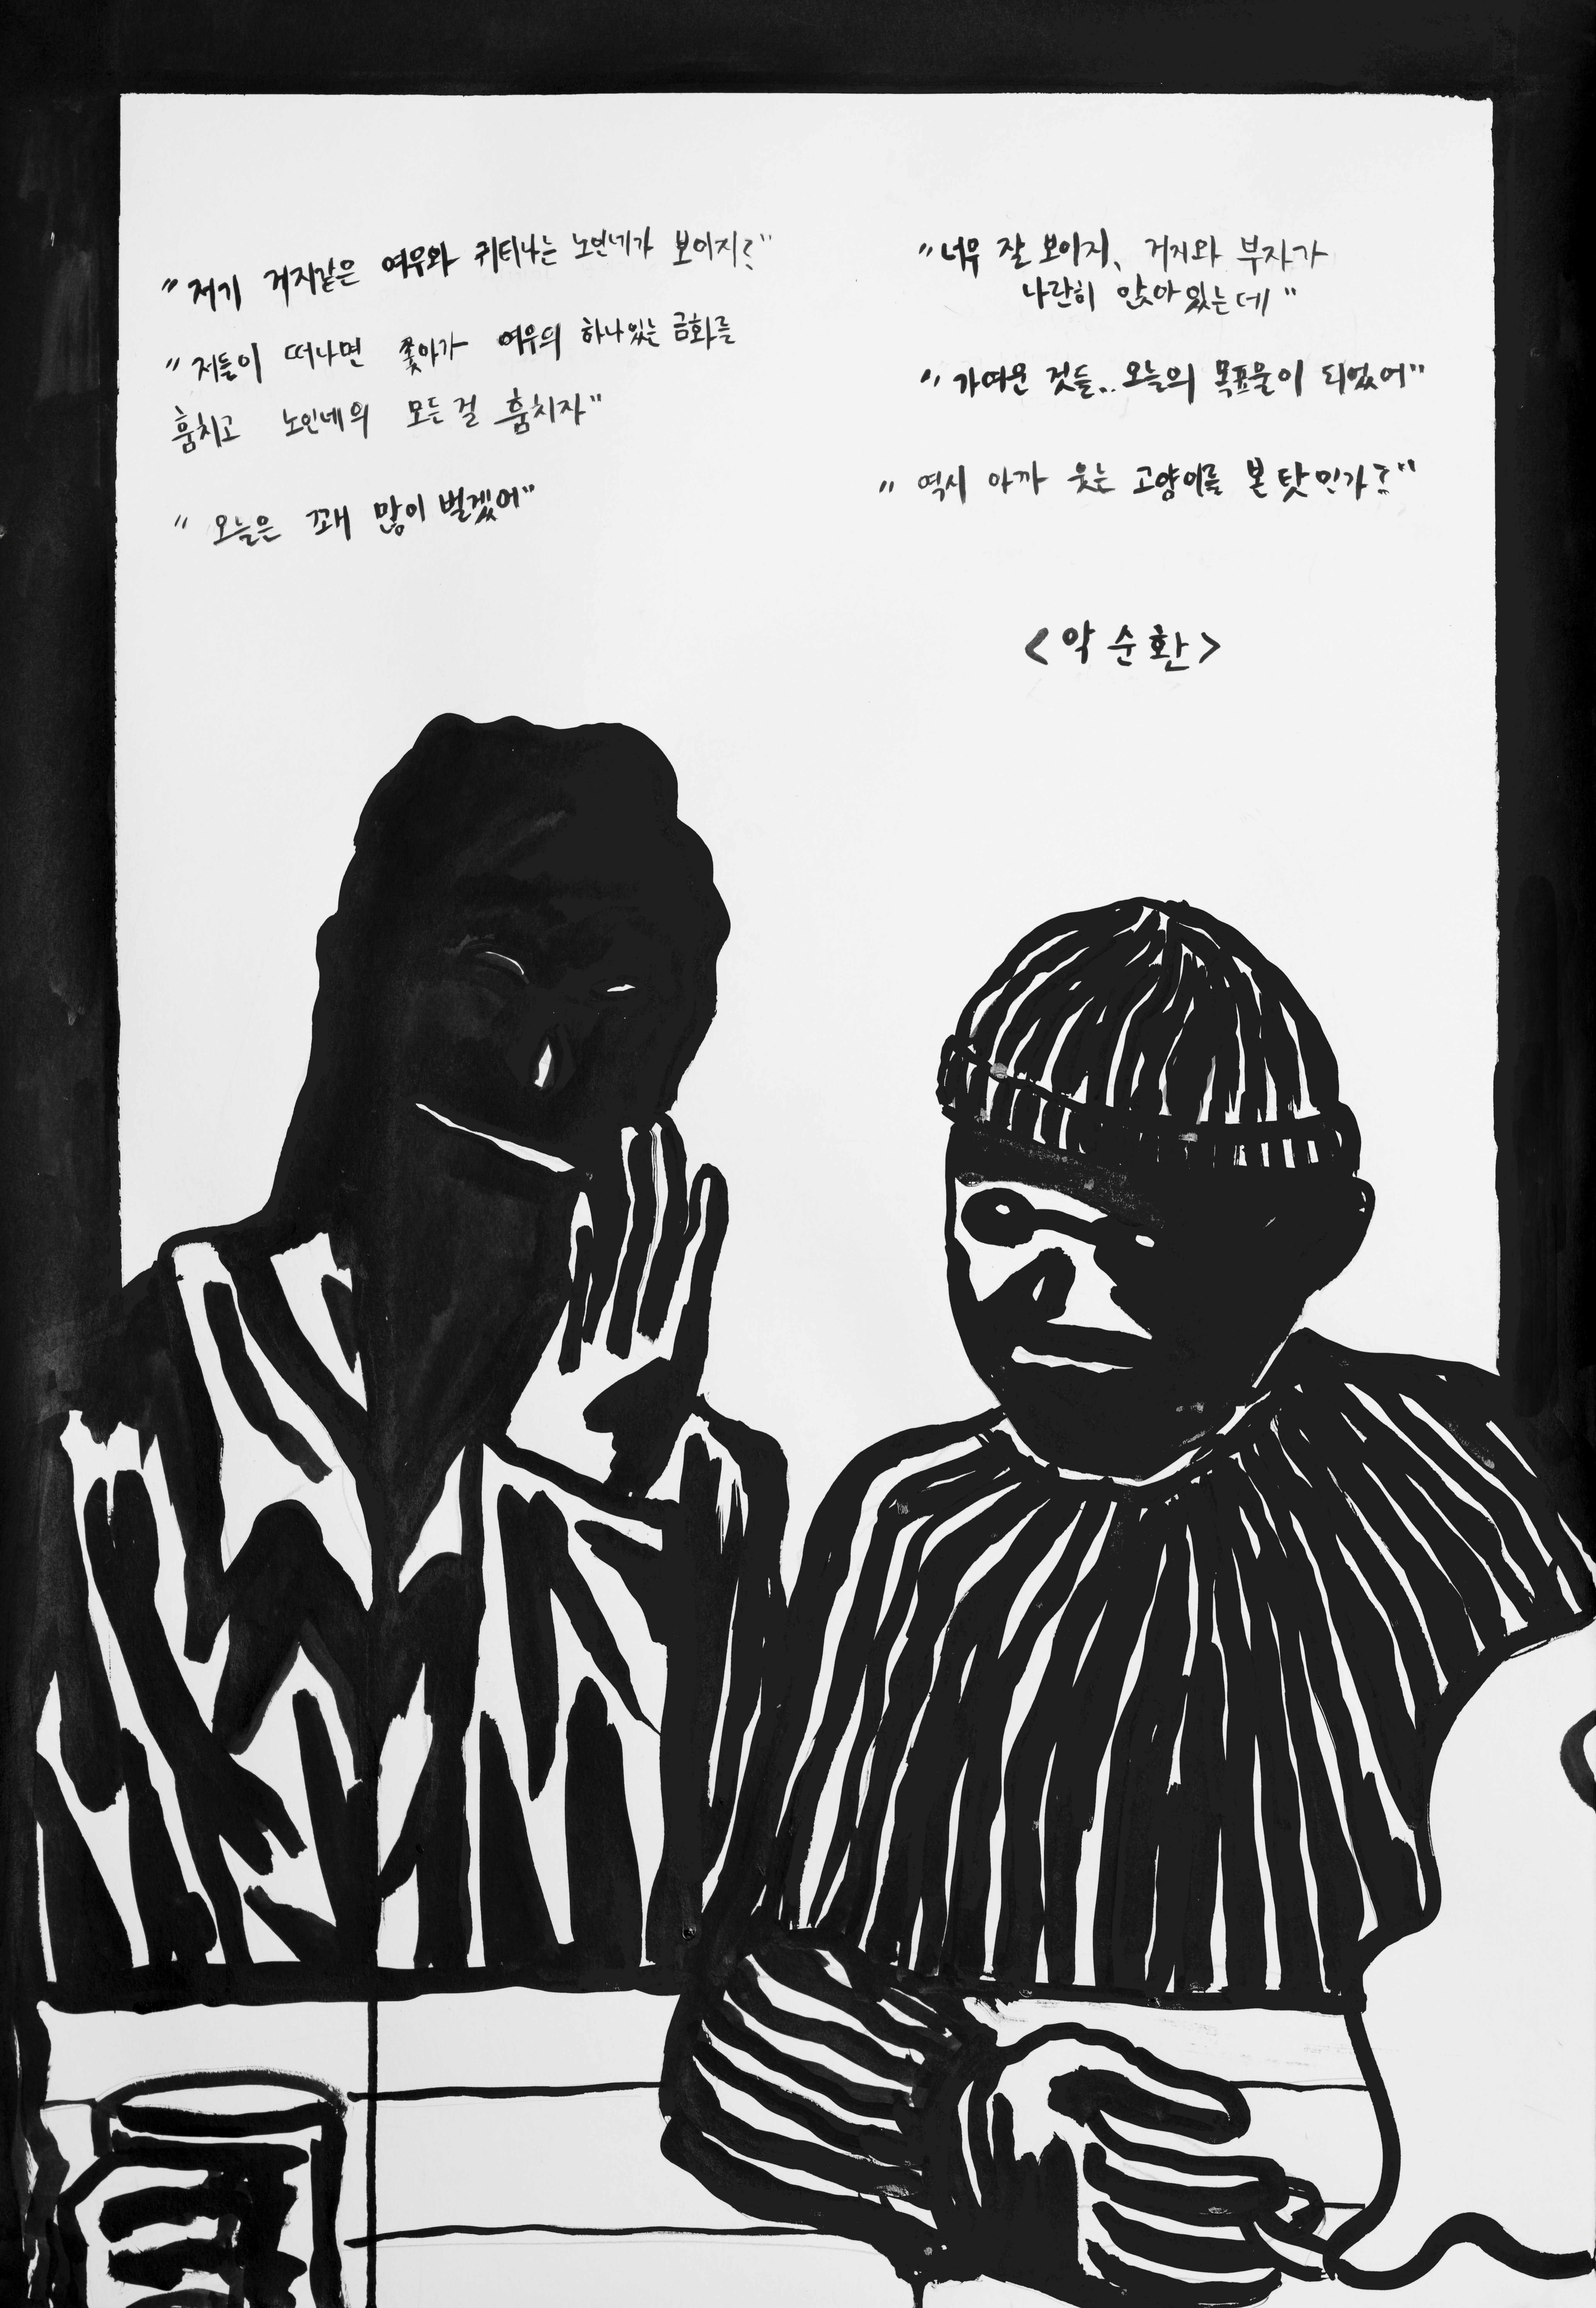 "저기 거지같은 여우와 귀티나는 노인네가 보이지?"
"저들이 떠나면 쫓아가 여우의 하나있는 금화를
훔치고 노인네의 모든 걸 훔치자"
"오늘은 꽤 많이 벌겠어"
"너무 잘 보이지, 거지와 부자가
나란히 앉아있는데"
"가여운 것들.. 오늘의 목표물이 되었어"
"역시 아까 웃는 고양이를 본 탓인가?"
<악순환>